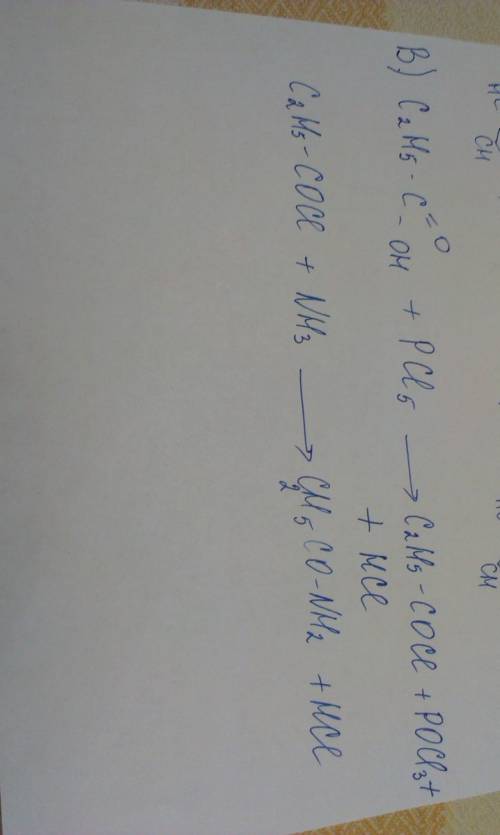 В) C₂H₅-C=O-OH + PCl₅ → C₂H₅-COCl + POCl₃ +
+ HCl
C₂H₅-COCl + NH₃ → C₂H₅CO-NH₂ + HCl
CH